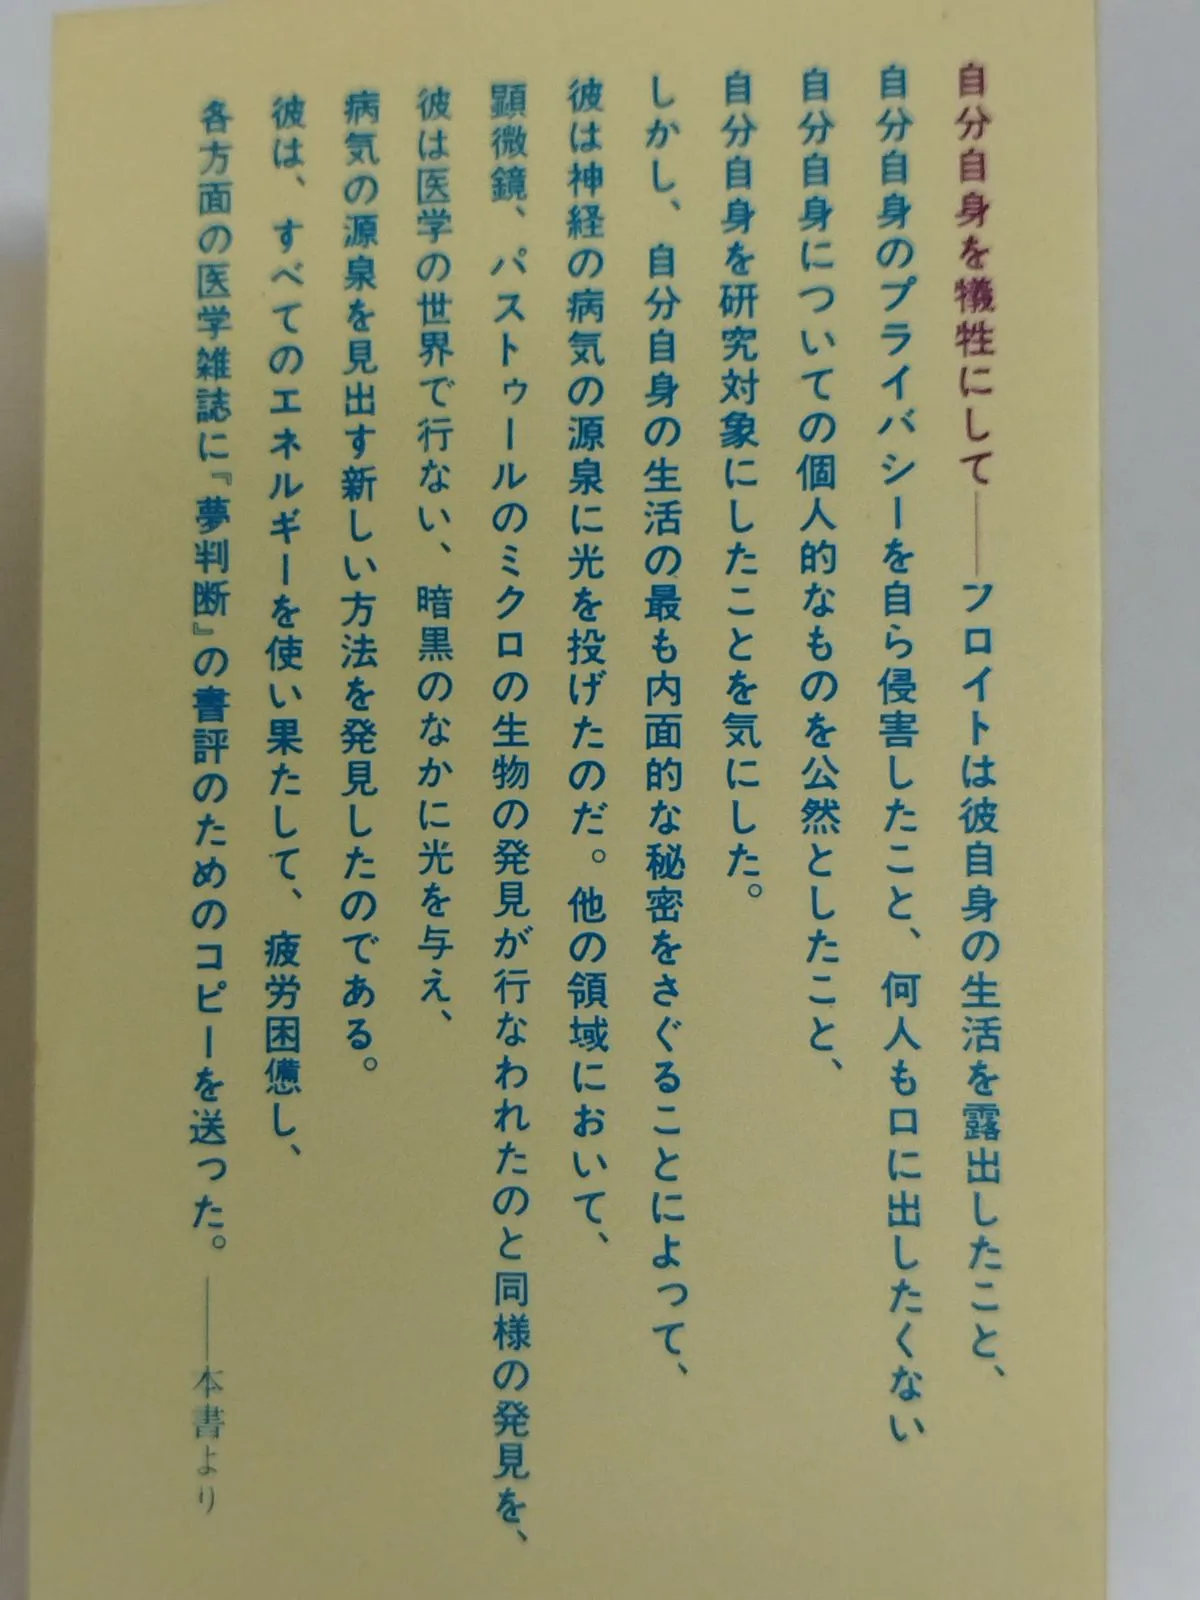 自分自身を犠牲にして――フロイトは彼自身の生活を露出したこと、
自分自身のプライバシーを自ら侵害したこと、何人も口に出したくない
自分自身についての個人的なものを公然としたこと、
自分自身を研究対象にしたことを気にした。
しかし、自分自身の生活の最も内面的な秘密をさぐることによって、
彼は神経の病気の源泉に光を投げたのだ。他の領域において、
顕微鏡、パストゥールのミクロの生物の発見が行なわれたのと同様の発見を、
彼は医学の世界で行ない、暗黒のなかに光を与え、
病気の源泉を見出す新しい方法を発見したのである。
彼は、すべてのエネルギーを使い果たして、疲労困憊し、
各方面の医学雑誌に『夢判断』の書評のためのコピーを送った。――本書より